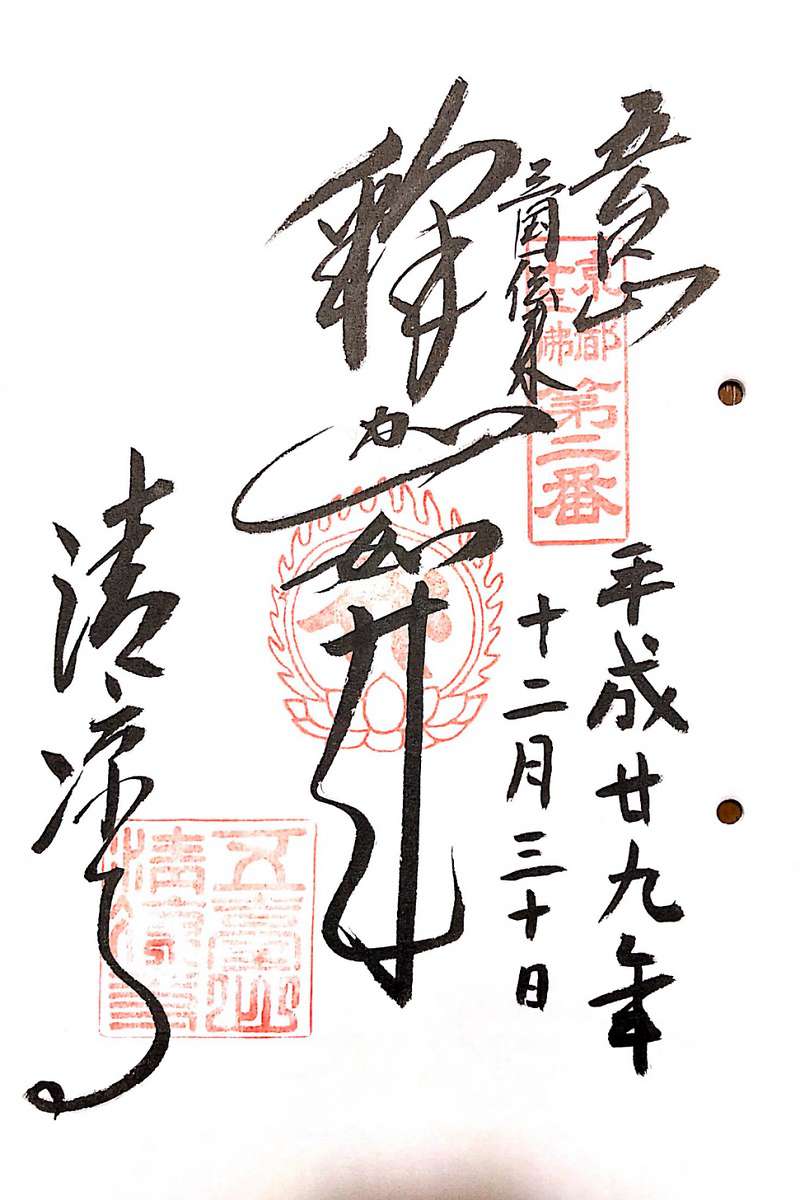 五台山
三国伝来
釋迦如来
清凉寺
平成廿九年
十二月三十日
京都
十三佛
第二番
五臺山
清凉寺